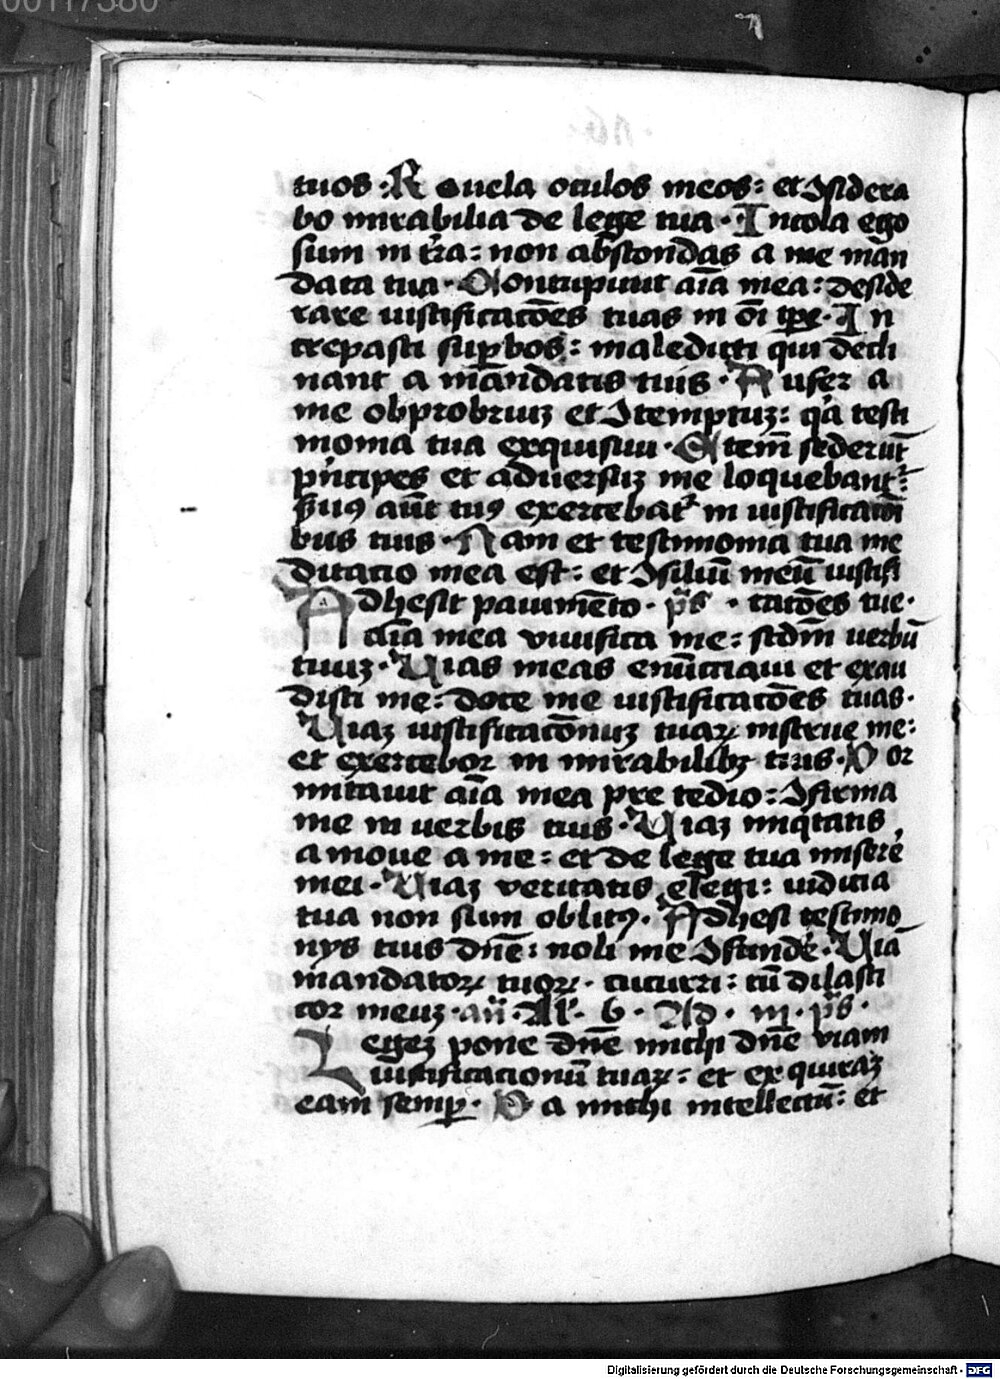 00117380
tuos · Reuela oculos meos : et ꝯsidera
bo mirabilia de lege tua · Incola ego
sum in tr̄a : non abscondas a me man
data tua · Concupiuit aīa mea : deside
rare iustificatōes tuas in oī tp̄e · In
crepasti suꝑbos : maledicti qui decli
nant a māndatis tuis · Aufer a
me obprobriuꝫ et ꝯtemptuꝫ : qᷓ testi
monia tua exquisiui · Etem̄ sederūt
pⁱncipes et aduersuꝫ me loquebantᷣ :
seruꝰ aūt tuꝰ exercebatᷣ in iustificatōi
bus tuis · Nam et testimonia tua me
ditatio mea est : et ꝯsiliū meū iustifi
Adhesit pauimēto · p̄s · catōes tue ·
aīa mea viuifica me : scdm̄ uerbū
tuuꝫ · Uias meas enūciaui et exau
disti me : doce me iustificatōes tuas ·
Uiaꝫ iustificatōnuꝫ tuaꝝ instrue me :
et exercebor in mirabilibꝫ tuis · Dor
mitauit aīa mea pre tedio : ꝯfirma
me in uerbis tuis · Uiaꝫ iniqⁱtatis
amoue a me : et de lege tua miserē
mei · Uiaꝫ veritatis elegi : iudicia
tua non sum oblitꝰ · Adhesi testimo
nys tuis dn̄e : noli me ꝯfundē · Uiā
mandatoꝝ tuoꝝ · cucurri : cū dilasti
cor meuꝫ · an̄ · Al' · b · Ad · iij · p̄s ·
Legeꝫ pone dn̄e michi dn̄e viam
iustificationū tuaꝝ : et exquiraꝫ
eam semꝑ · Da michi intellectū : et
Digitalisierung gefördert durch die Deutsche Forschungsgemeinschaft - DFG